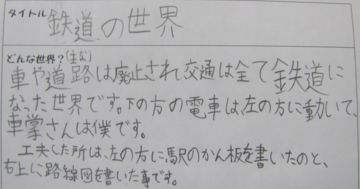 タイトル 鉄道の世界
どんな世界?(主に)
車や道路は廃止され、交通は全て鉄道に
なった世界です。下の方の電車は、左の方に動いて、
車掌さんは僕です。
工夫した所は、左の方に、駅のかん板を書いたのと、
右上に路線図を書いた事です。